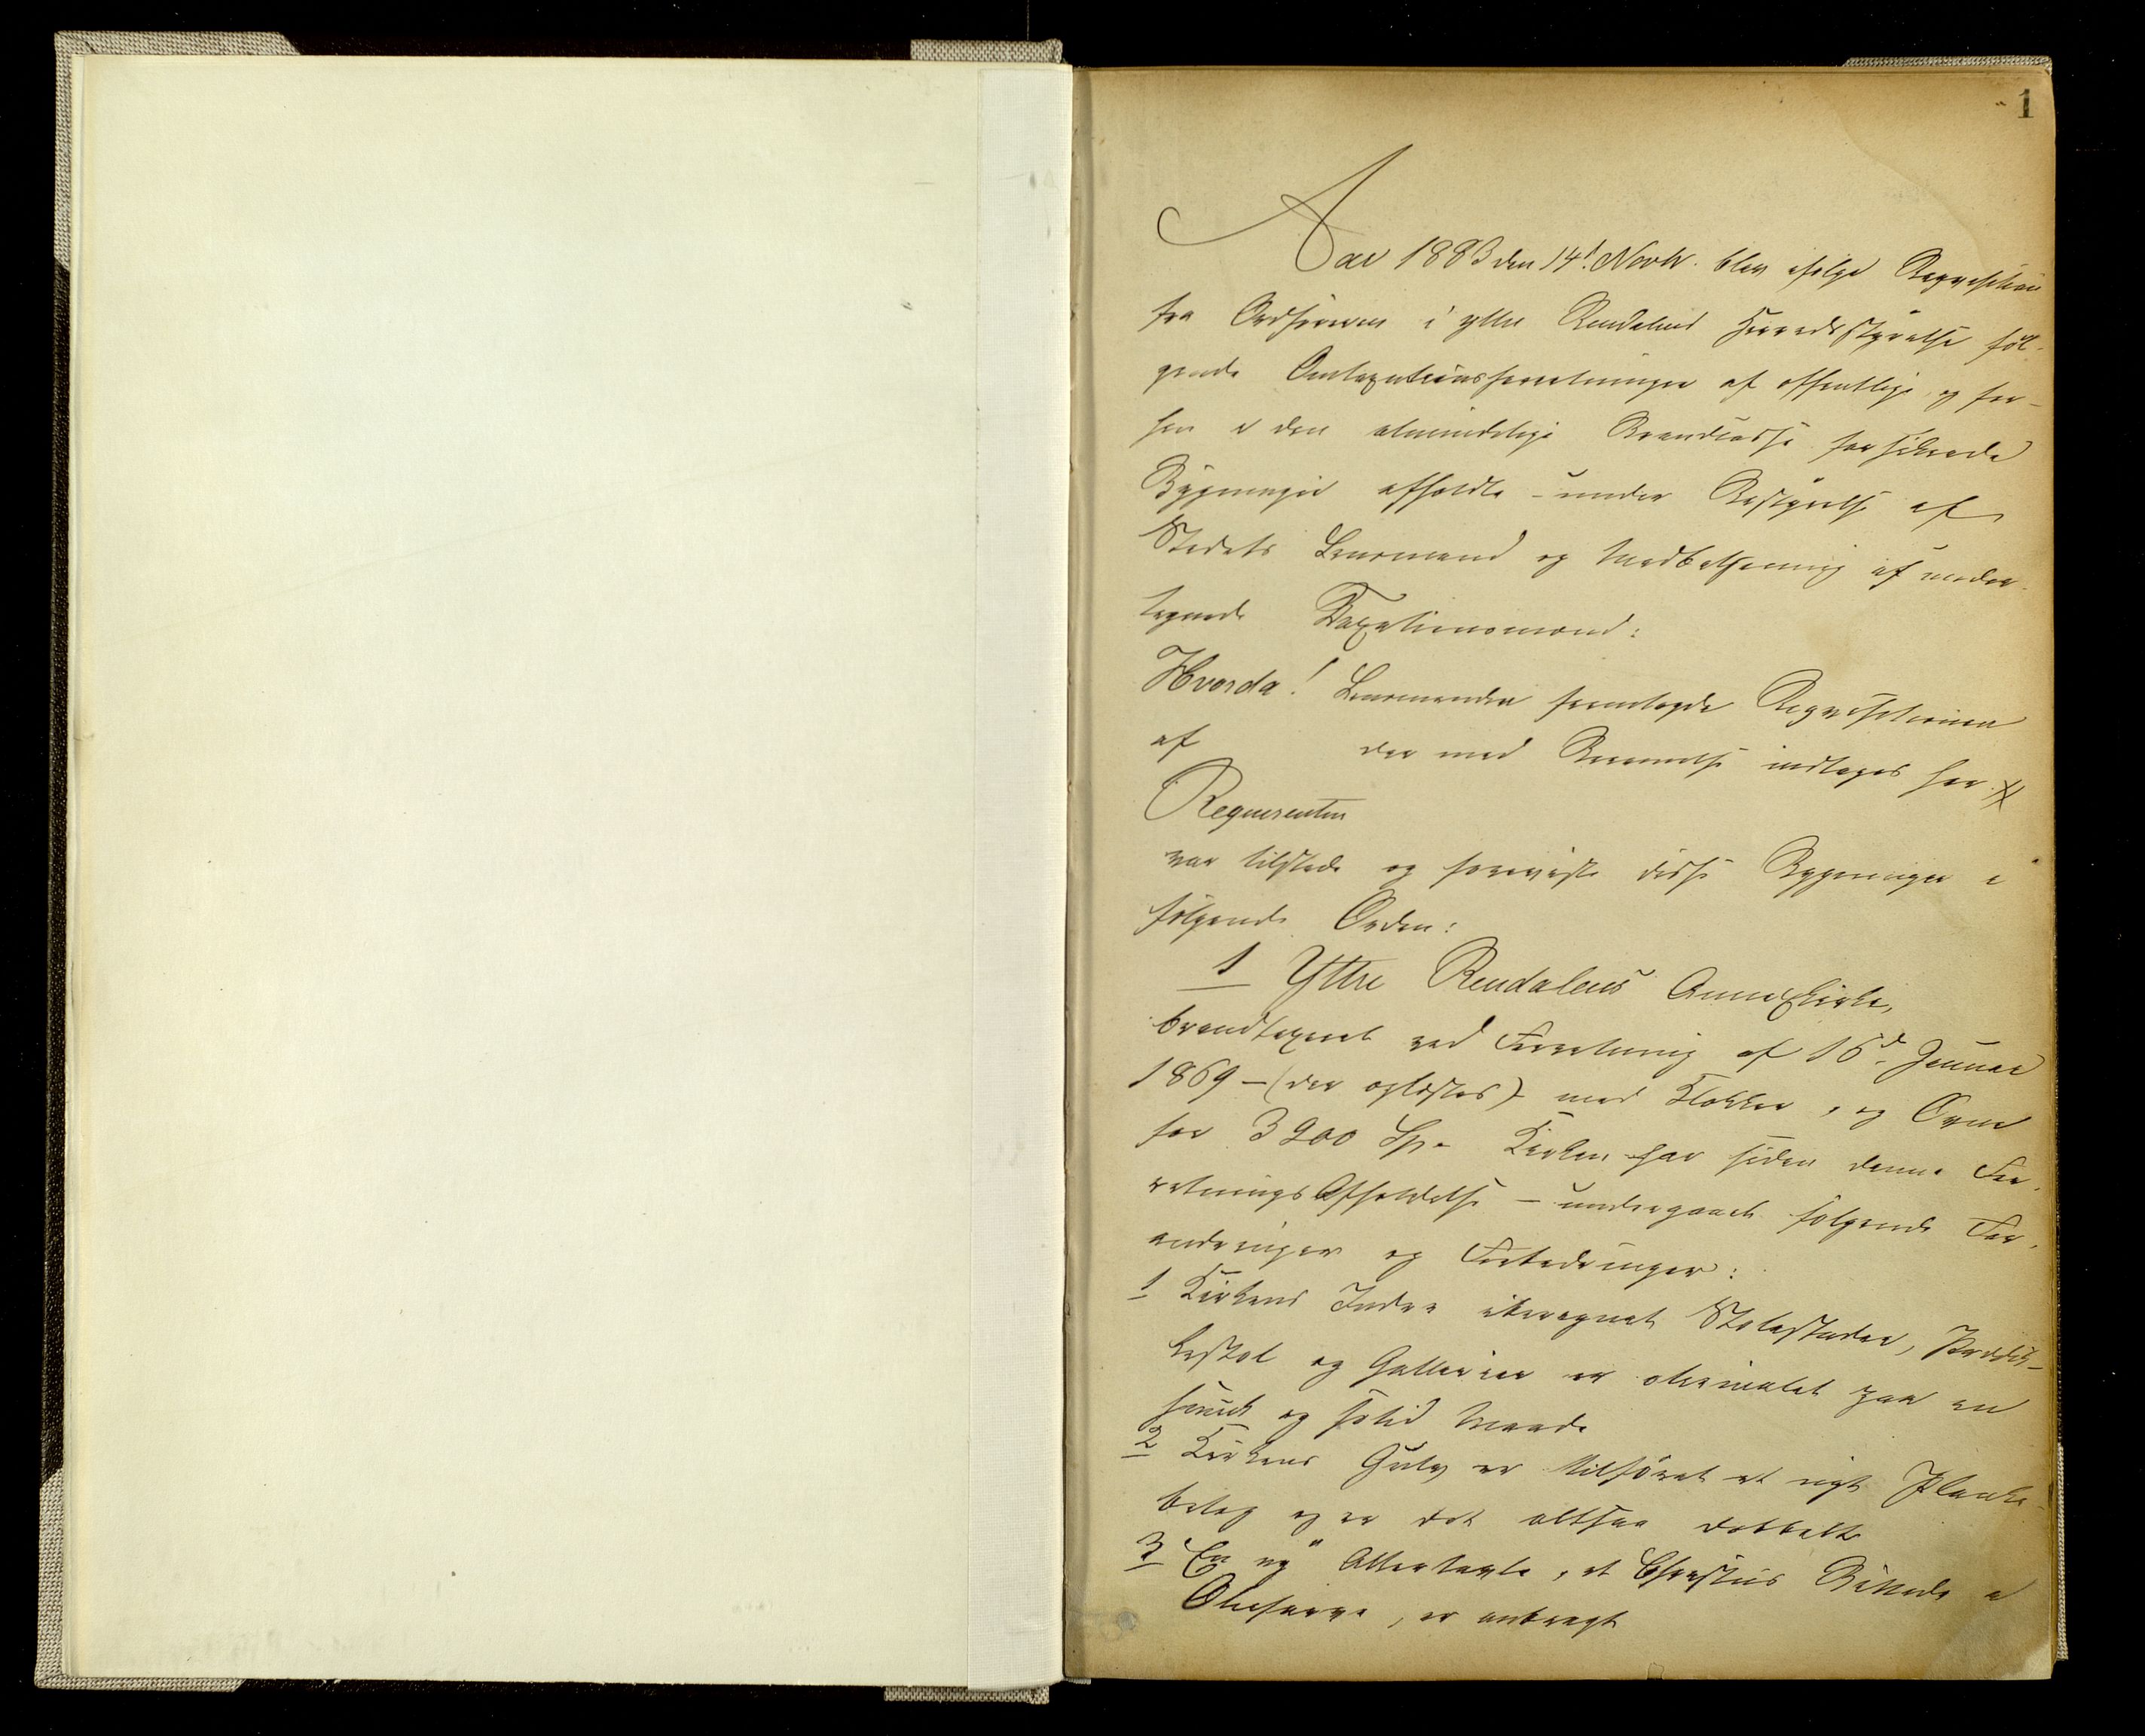 1
Aar 1883 den 14d Novbr. blev ifølge Reqvisition
fra Ordføreren i yttre Rendalens Herredsstyrelse føl-
gende Omtaxationsforretninger af offentlige og før-
hen i den almindelige Brandcasse forsikrede
Bygninger afholdte – under Bestyrelse af
Stedets Lensmand og Medbetjening af under-
tegnede Taxationsmænd:
Hvorda! Lensmanden fremlagde Reqvisitionen
af der med Berammelse indtages her
Reqvirenten
var tilstede og foreviste disse Bygninger i
følgende Orden:
1 Yttre Rendalens Annexkirke,
brandtaxeret ved Forretning af 16d Januar
1869 – (der oplæstes) med Klokker, og Ovne
for 3200 Spd. Kirken har siden denne For-
retnings Afholdelse – undergaaet følgende For-
andringer og Forbedringer:
1 Kirkens Indre iberegnet Stolestader, Prædik-
kestol og Gallerier er oliemalet paa en
smuk og solid Maade
2 Kirkens Gulv er tilføiet et nyt Planke-
belæg og er det altsaa dobbelt
3 En ny Altertavle, et Christus Billede i
Oliefarve, er anbragt